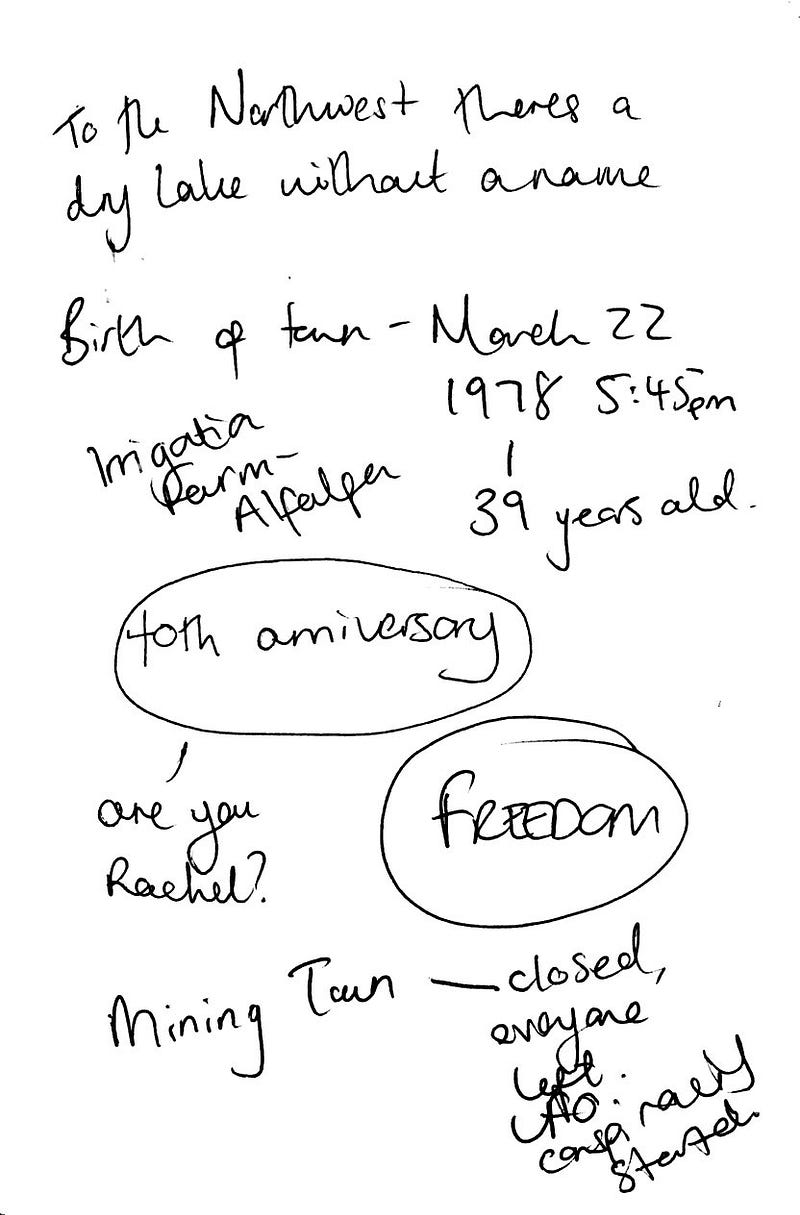 To the Northwest theres a
dry lake without a name
Birth of town - March 22
1978 5:45pm
39 years old.
Irrigatia
Farm -
Alfalfa
40th anniversary
are you
Rachel?
FREEDOM
Mining Town — closed,
everyone
left.
UFO.
conspiracy
started.